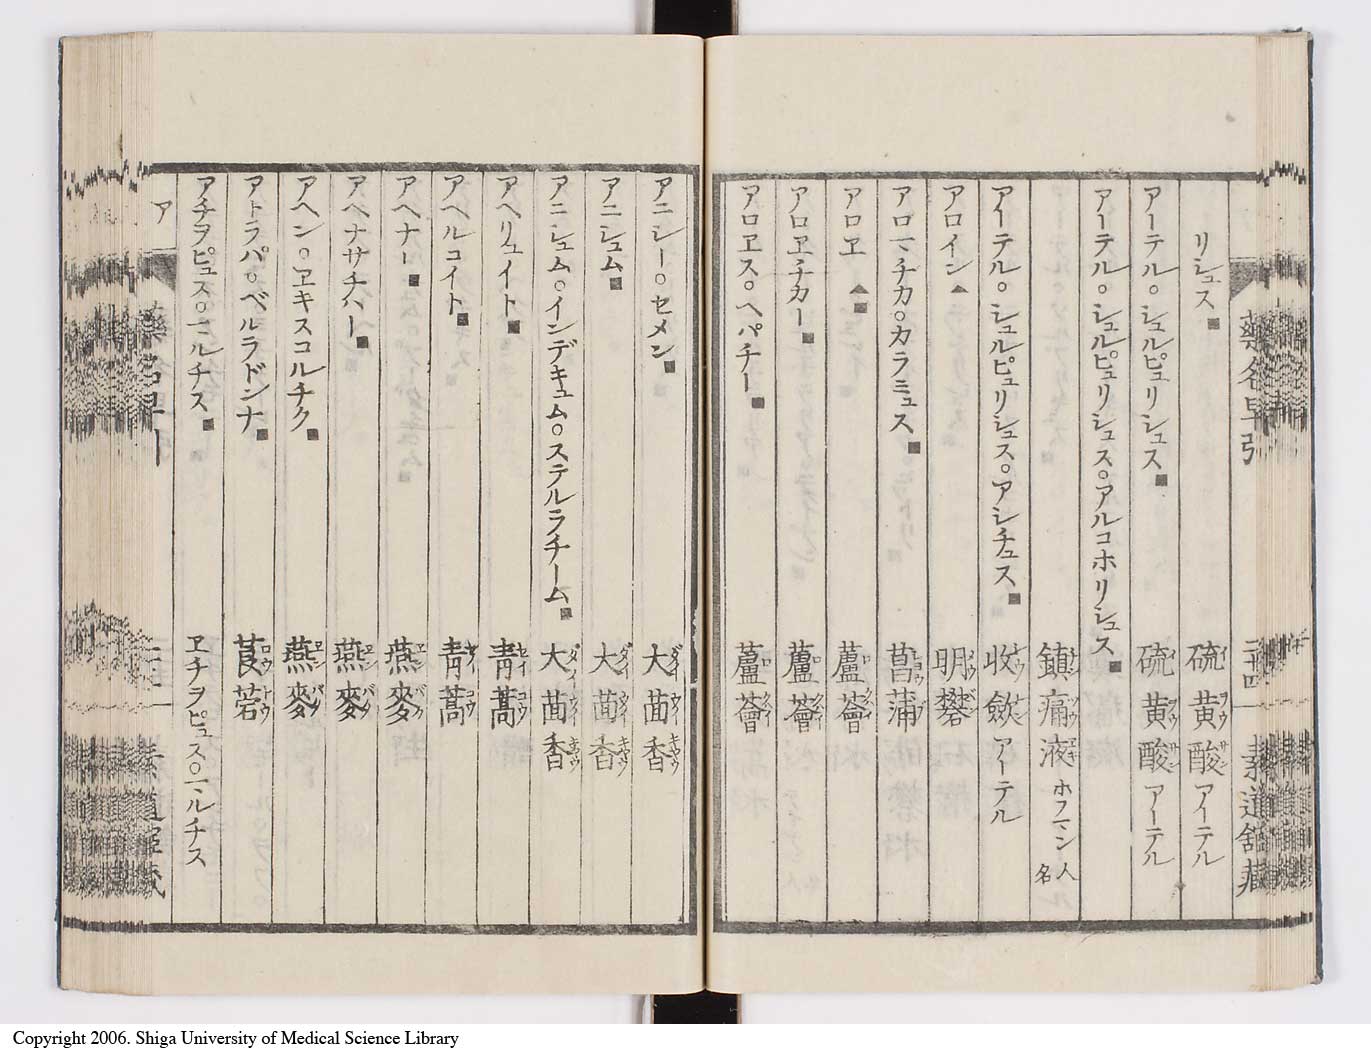 藥名早引 三十四 素道舘藏
リシュス■ 硫黄酸アイテル
アーテル○シュルピュリシュス■ 硫黄酸アーテル
アーテル○シュルピュリシュス○アルコホリシュス■
鎮痛液 ホフマン人名
アーテル○シュルピュリシュス○アシチュス■ 收斂アーテル
アロイン▲ 明礬
アロマチカ○カラミュス■ 菖蒲
アロヱ▲■ 蘆薈
アロヱチカー■ 蘆薈
アロヱス○ヘパチー■ 蘆薈
アニシー○セメン■ 大茴香
アニシュム■ 大茴香
アニシュム○インデキュム○ステルラチーム■ 大茴香
アヘリュイト■ 青蒿
アヘルコイト■ 青蒿
アヘナー■ 燕麥
アヘナサチハー■ 燕麥
アヘン○ヱキスコルチク■ 燕麥
アトラパ○ベルラドンナ■ 莨菪
アチヲピュス○マルチス■ ヱチヲピュス○マルチス
ア 藥名早
Copyright 2006. Shiga University of Medical Science Library